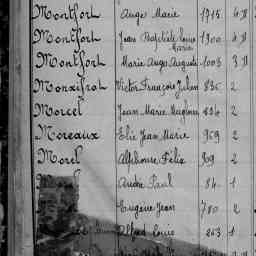 Montfort Ange Marie 1715 4 D
Montfort Jean Baptiste Louis Marie 1900 4 D
Montfort Marie Ange Auguste 1003 3 D
Monxifrot Victor François Julien 836 2
Morcel Jean Marie 834 2
Moreaux Elie Jean Marie 969 2
Morel Alphonse Félix 709 2
André Paul 84 1
Eugène Jean 780 2
Alfred Louis 263 1